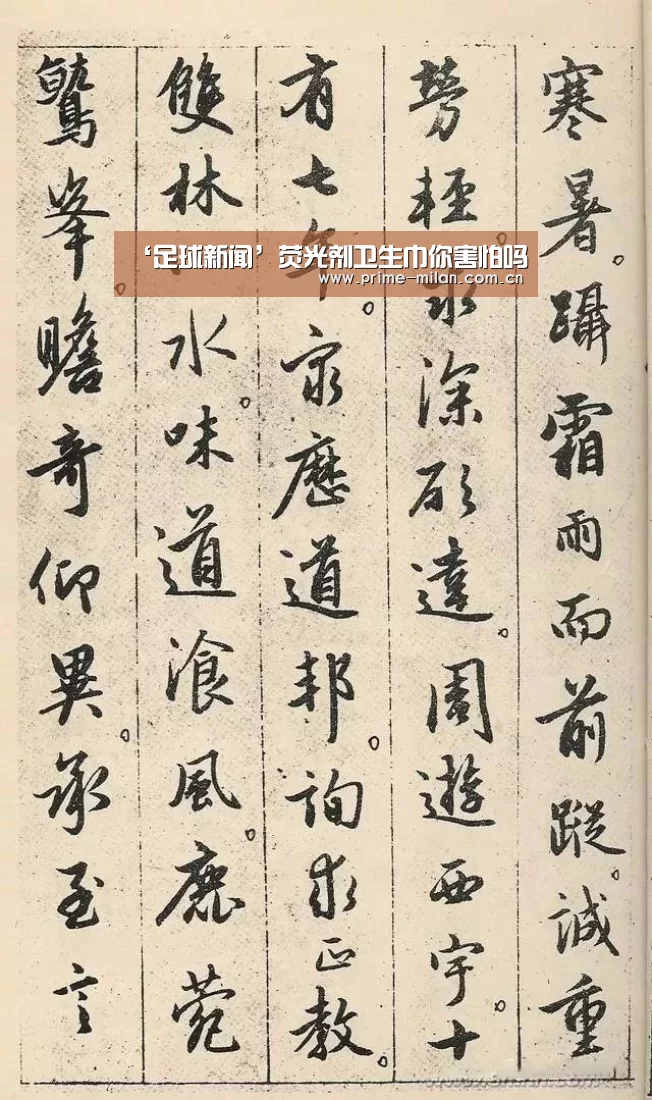 寒暑。躡霜雨而前蹤。誠重
勞輕。求深願達。周遊西宇。十
有七年。窮歷道邦。詢求正教。
雙林水。味道湌風。鹿菀
鷲峯。瞻奇仰異。承至言
‘足球新闻’荧光剂卫生巾你害怕吗
www.prime-milan.com.cn